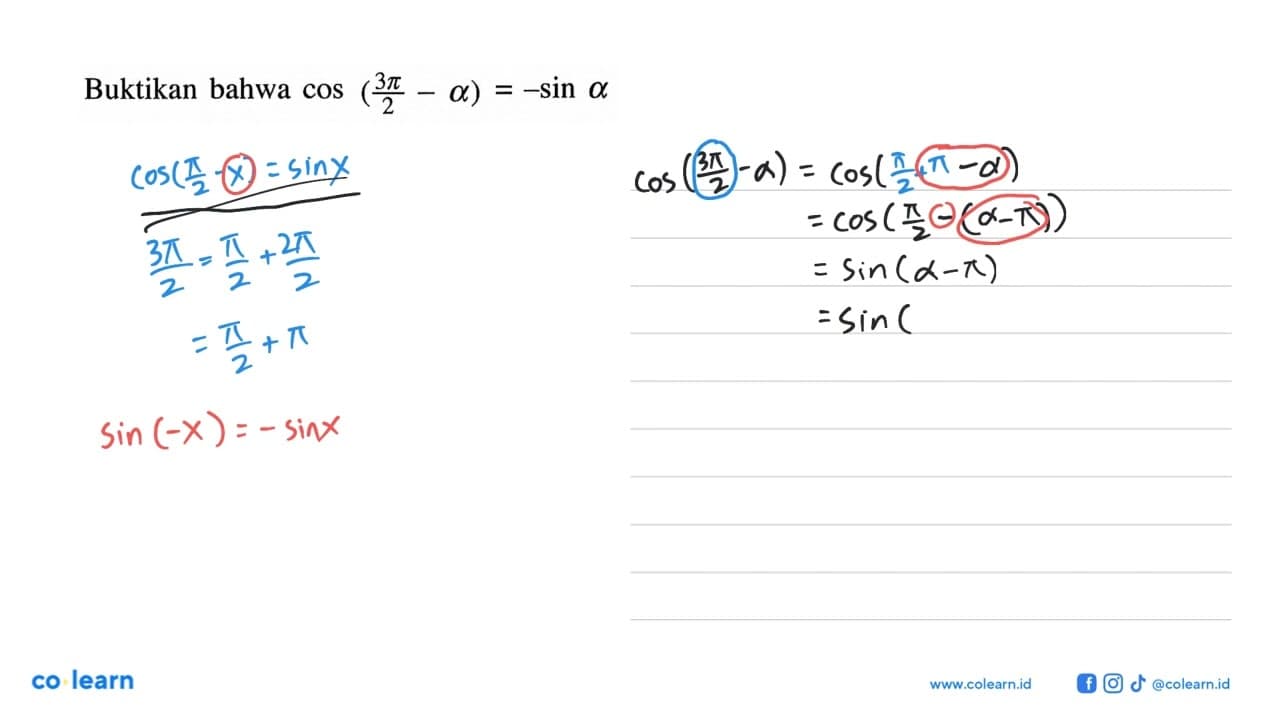 Buktikan bahwa cos (3π/2 − α) = –sin α
cos(π/2 - x) = sin x
3π/2 = π/2 + 2π/2
= π/2 + π
sin(-x) = - sin x
cos(3π/2 - α) = cos(π/2 + π - α)
= cos(π/2 - (α - π))
= sin(α - π)
= sin(
co learn
www.colearn.id @colearn.id